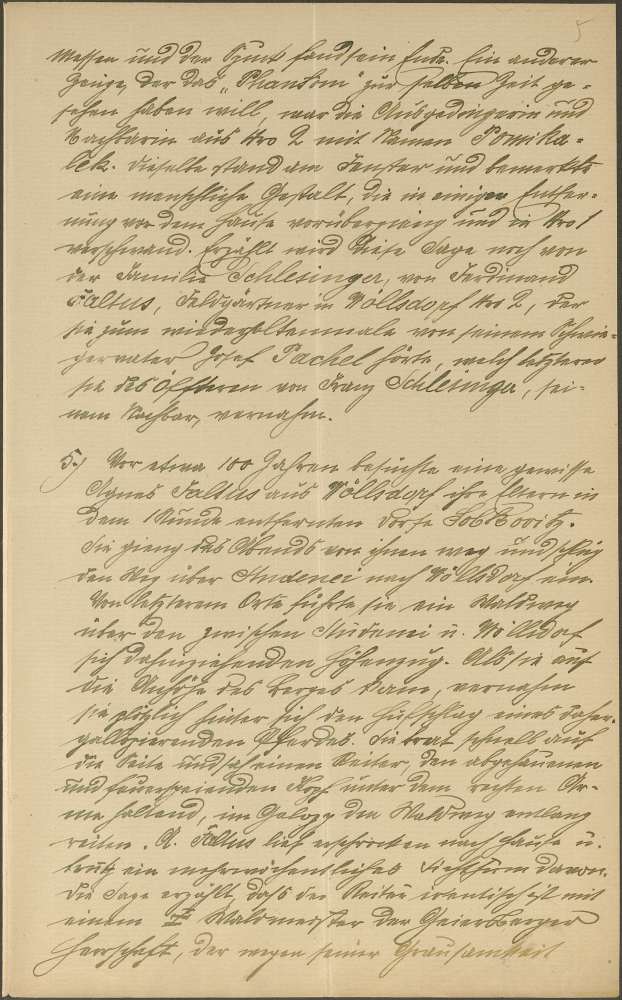 5
Messer und der Spuck fand sein Ende. Ein anderer
Zeuge, der das „Phantom" zur selben Zeit ge-
sehen haben will, war die Ausgedingerin und
Nachbarin aus Nro 2 mit Namen Pomika-
lek. Dieselbe stand am Fenster und bemerkte
eine menschliche Gestalt, die in einiger Entfer-
nung vor dem Hause vorübergieng und in Nro 1
verschwand. Erzählt wird diese Sage noch von
der Familie Schlesinger, von Ferdinand
Faltus, Feldgärtner in Wöllsdorf Nro 2, der
sie zum wiederholtenmale von seinem Schwie-
gervater Josef Pachel hörte, welch letzterer
sie des Öffteren von Franz Schlesinger, sei-
nem Nachbar, vernahm.
5.) Vor etwa 100 Jahren besuchte eine gewisse
Agnes Faltus aus Wöllsdorf ihre Eltern in
dem 1 Stunde entfernten Dorfe Lobkovitz.
Sie gieng des Abends von ihnen weg und schlug
den Weg über Studenei nach Wöllsdorf ein.
Von letzterem Orte führte sie ein Waldweg
über den zwischen Studenei u. Wöllsdorf
sich dahinziehenden Höhenzug. Als sie auf
die Anhöhe des Berges kam, vernahm
sie plötzlich hinter sich den Hufschlag eines daher-
galloppierenden Pferdes. Sie trat schnell auf
die Seite und sah einen Reiter, den abgehauenen
und feuerspeienden Kopf unter dem rechten Ar-
me haltend, im Galopp den Waldweg entlang
reiten. A. Faltus lief erschrocken nach Hause u.
trug ein mehrwöchentliches Siechthum davon.
Die Sage erzählt, dass der Reiter identisch ist mit
einem Waldmeister der Geiersberger
Herrschaft, der wegen seiner Grausamkeit